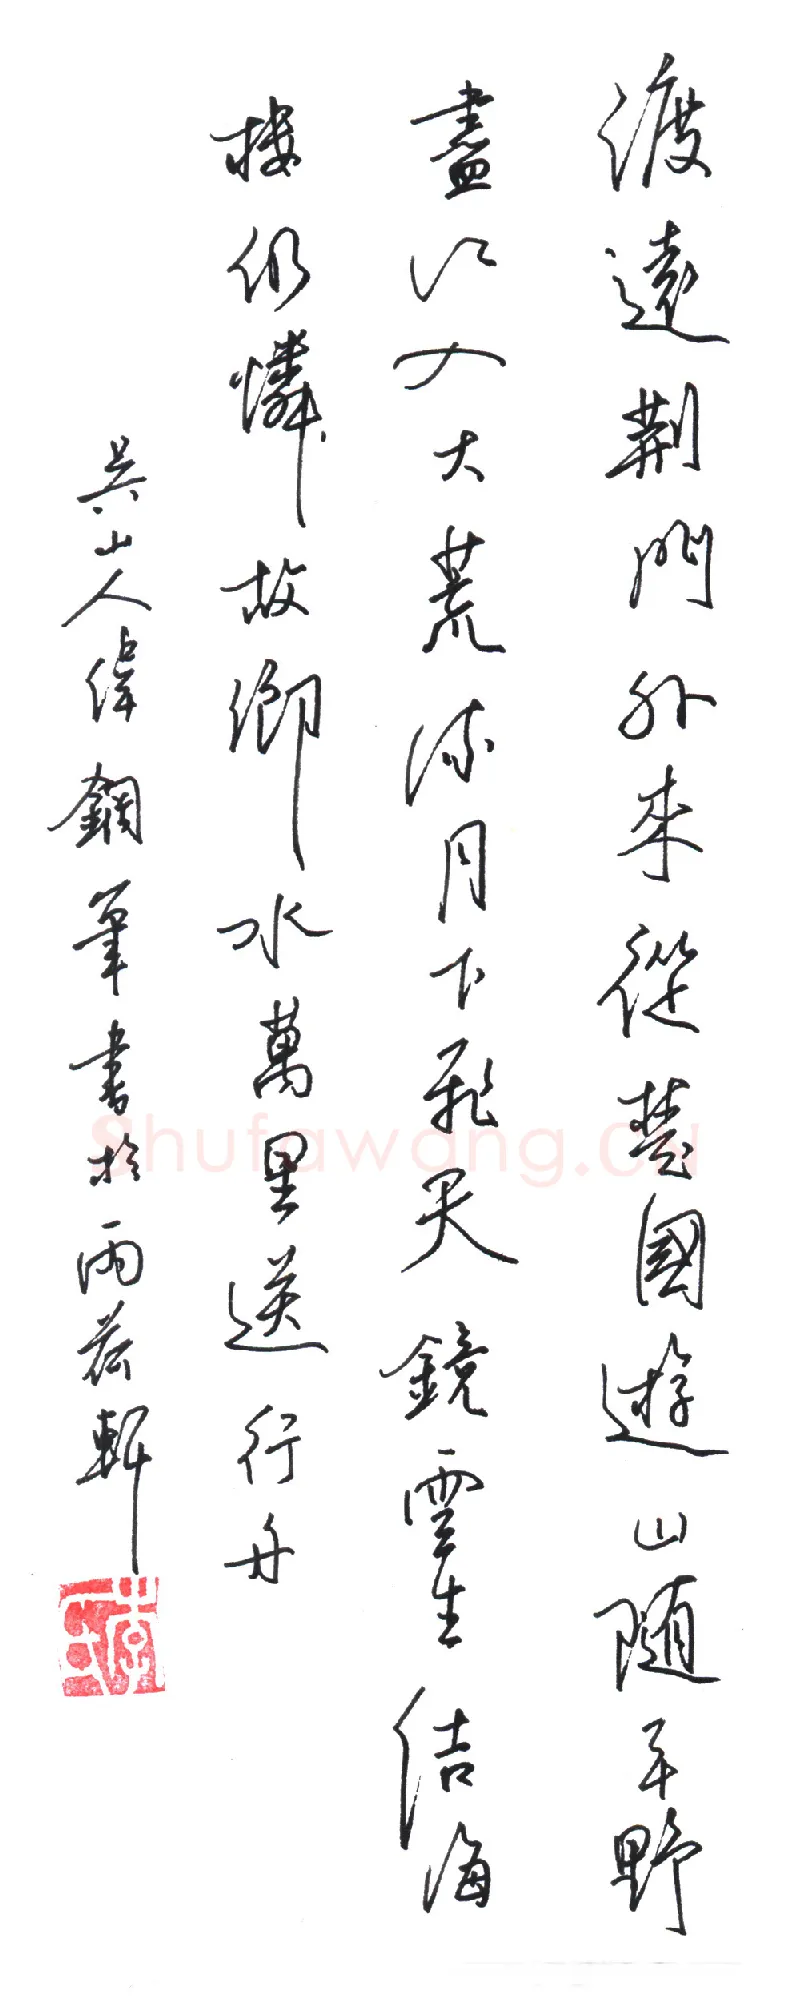 渡遠荆門外来從楚國遊山随平野
盡江入大荒流月下飛天鏡雲生结海
楼仍憐故鄉水萬里送行舟
吴山人偉鋼筆書於雨荷軒
Shufawang.CN